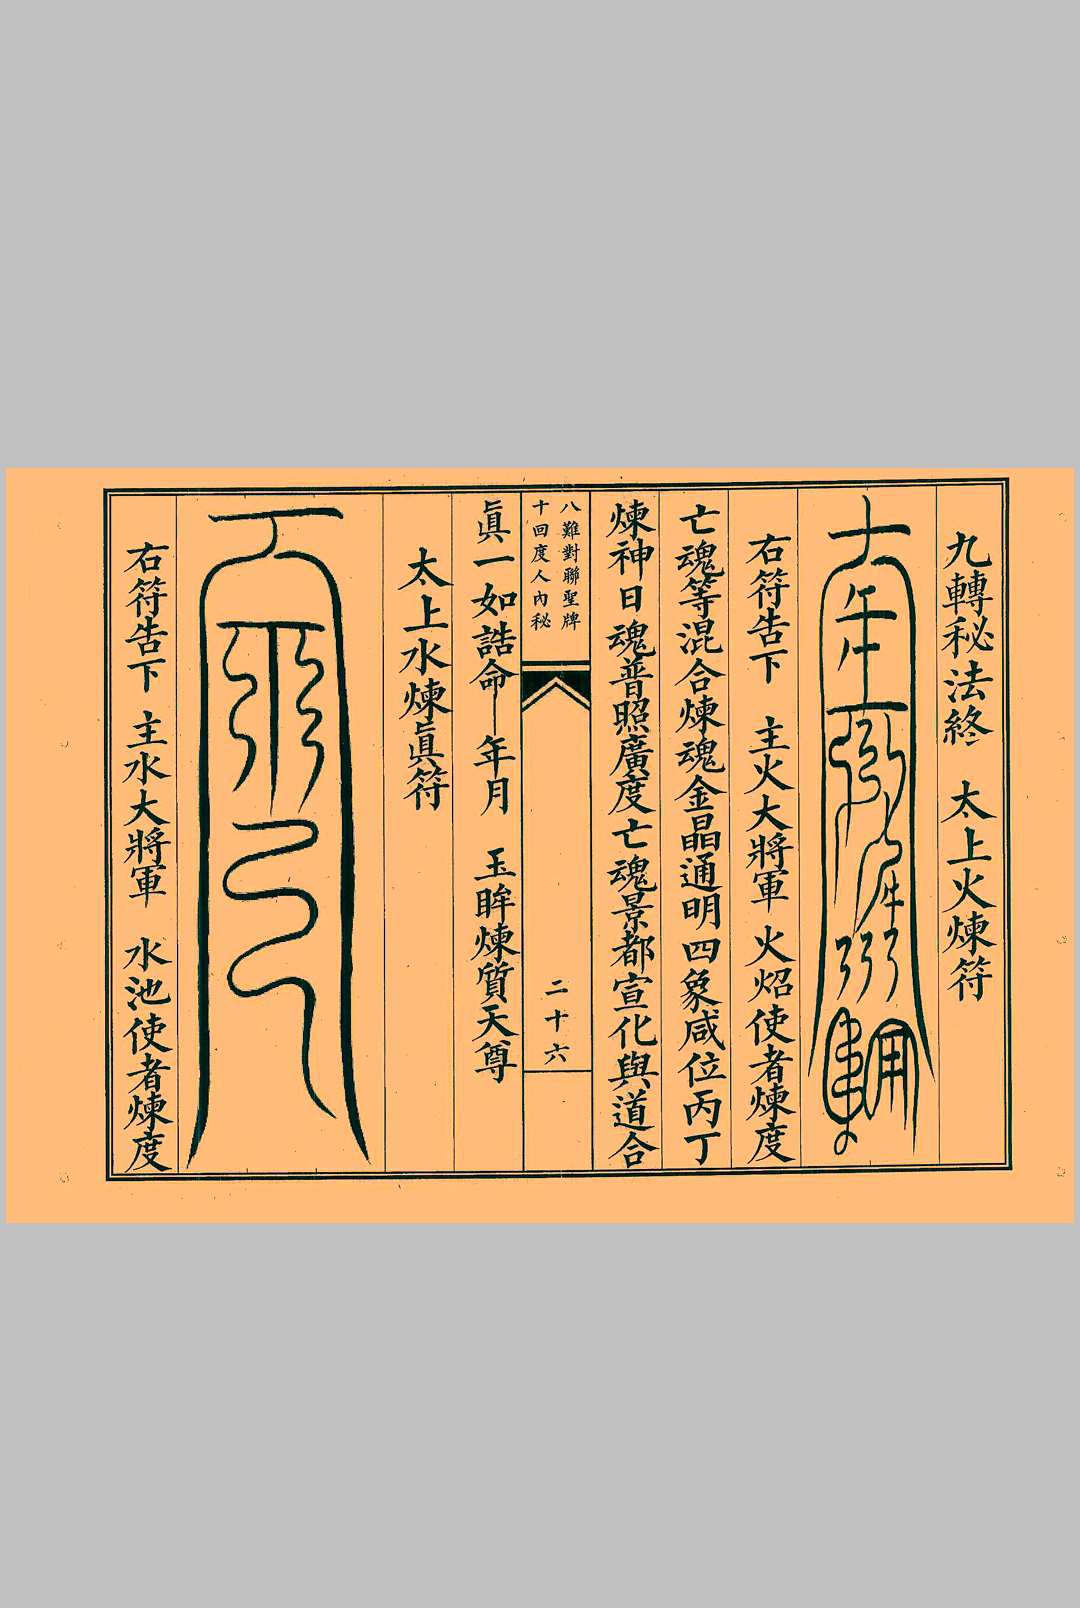 九轉秘法終　太上火煉符
右符告下　主火大將軍　火炤使者煉度
亡魂等混合煉魂金晶通明四象咸位丙丁
煉神日魂普照廣度亡魂景都宣化與道合
八難對聯聖牌
十回度人內秘
二十六
眞一如誥命　年月　玉眸煉質天尊
太上水煉眞符
右符告下　主水大將軍　水池使者煉度